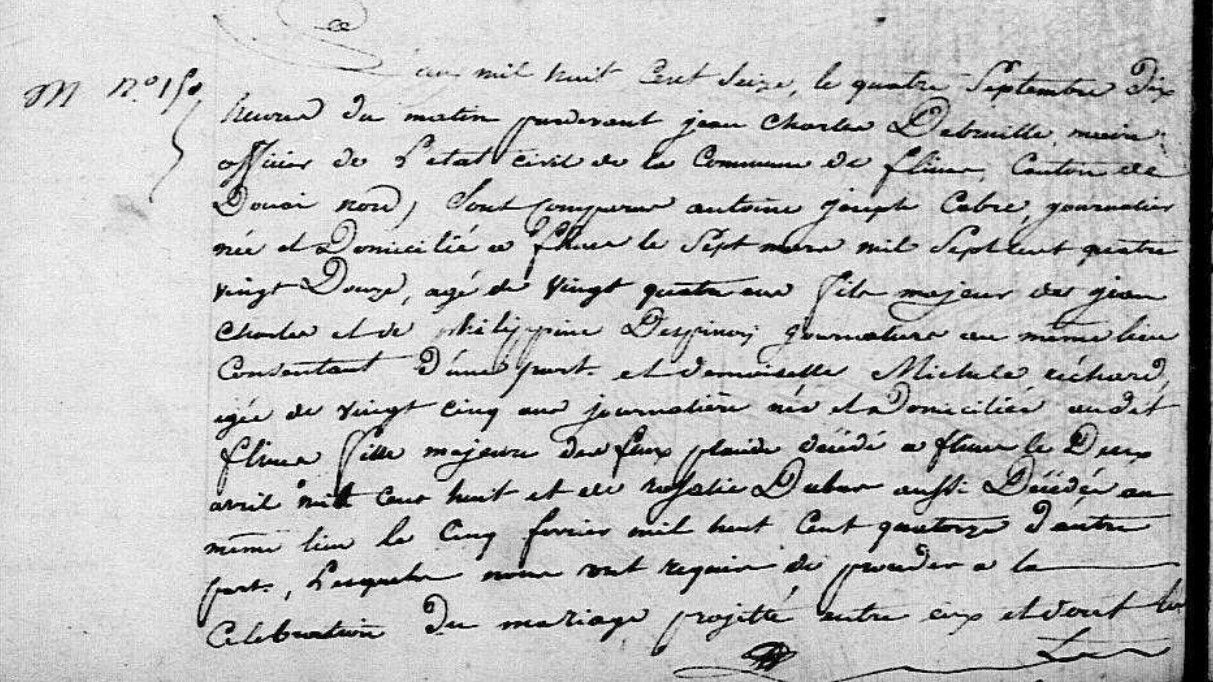 M n.o 150
au mil huit Cent Seize, le quatre Septembre dix
heures du matin pardevant jean Charles Debruille, maire
officier de l'etat civil de la Commune de flines, Canton de
Douai nord, Sont comparus antoine joseph Cabre, journalier
née et Domicilié a flines le Sept mars mil Sept Cent quatre
vingt Douze, agé de vingt quatre ans fils majeur de jean
Charles et de philippine Despinoy journaliers au même lieu
Consentant d'une part. et demoiselle Michele richard,
agée de vingt cinq ans journalière née et Domiciliée audit
flines fille majeure des feux placide décédé a flines le Deux
avril mil cens huit et de rosalie Dubar aussi Décédée au
même lieu le Cinq fevrier mil huit Cent quatorze d'autre
part., Lesquels nous ont requis de proceder a la
Celebration du mariage projetté entre eux et dont les